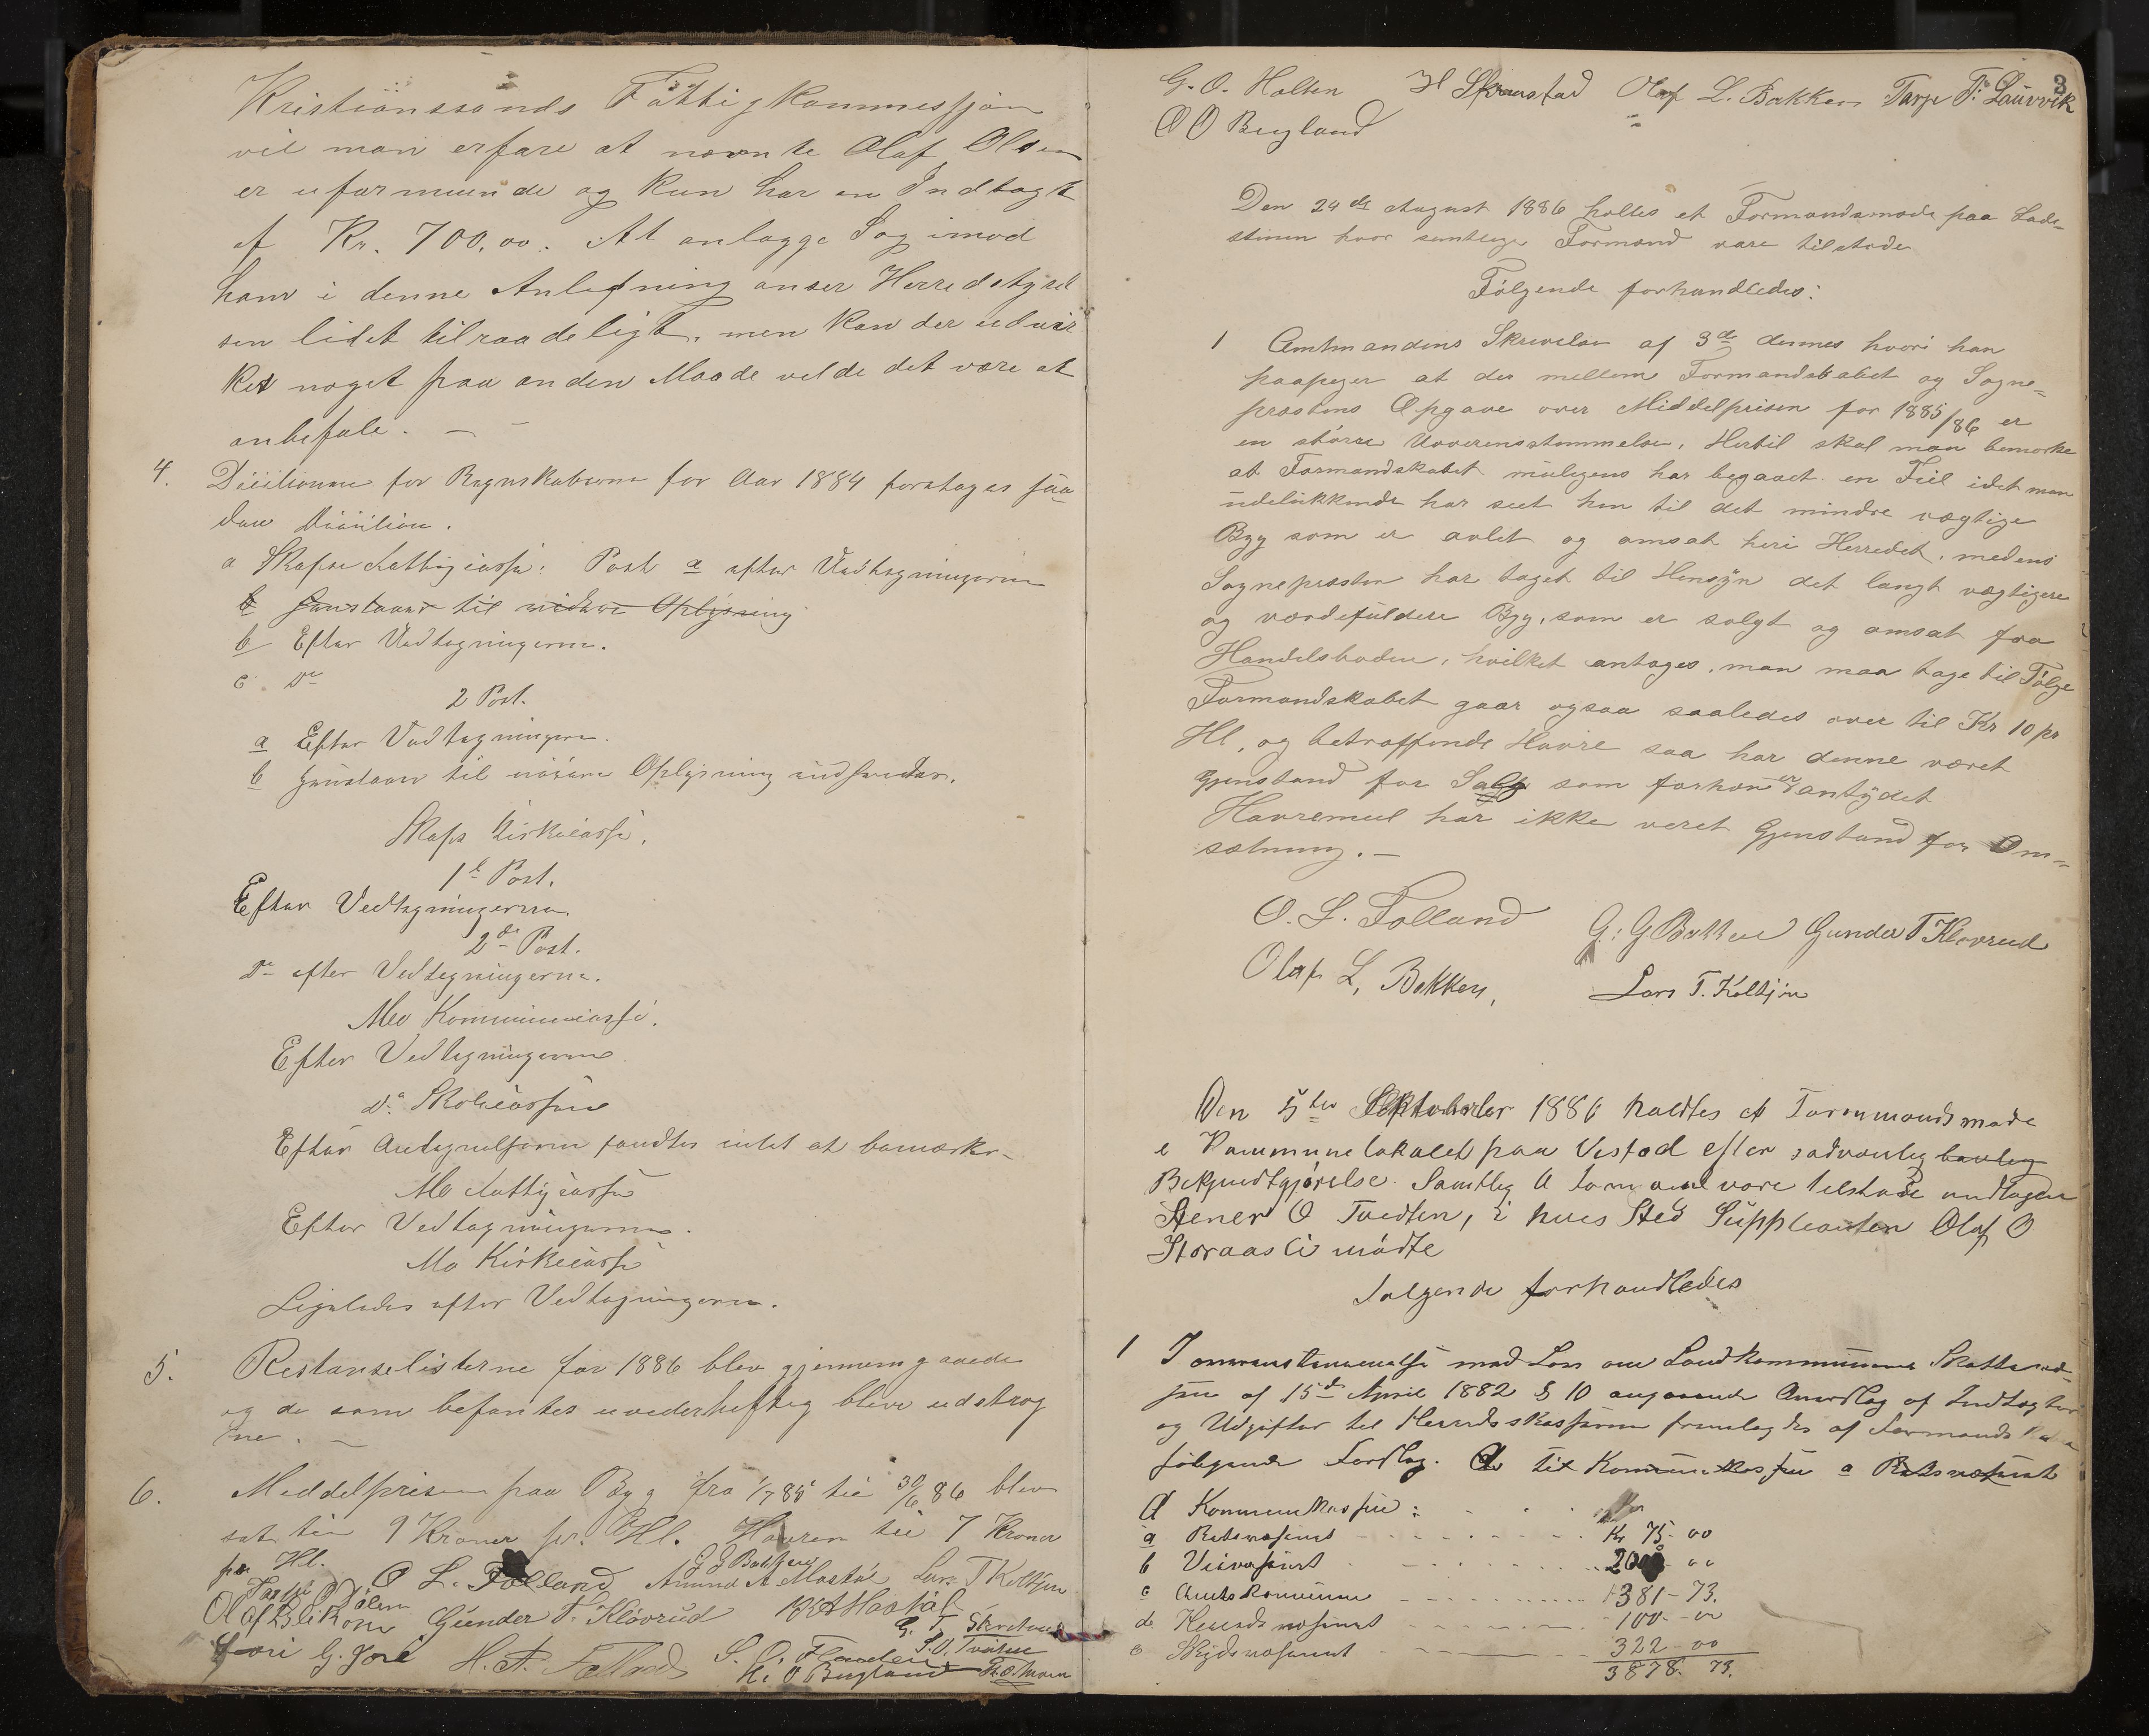 Kristianssands Fattigkommessjon
vil man erfare at nævnte Olaf Olsen
er uformuende og kun har en Indtægt
af Kr. 700,00. At anlægge Sag imod
ham i denne Anledning anser Herredstyrel
sen lidet tilraadeligt, men kan der udvir
kes noget paa anden Maade vilde det være at
anbefale. —
4. Desitionen for Regnskaberne for Aar 1884 foretages saa
dan Desition.
a Skafse Fattigcasse: Post a efter Vedtegningerne
b til videre Oplysning
b Efter Vedtegningerne.
c Do
2 Post.
a Efter Vedtegningerne.
b til nøiere Oplysning indhentes.
Skafse Kirkecasse.
1ste Post.
Efter Vedtegningerne.
2den Post.
Do efter Vedtegningerne.
Mo Kommunecasse.
Efter Vedtegningerne
Do Skolecassen
Efter Antegnelserne fandtes intet at bemærke
Mo Fattigcasse
Efter Vedtegningerne.
Mo Kirkecasse
Ligeledes efter Vedtegningerne.
5. Restanselisterne for 1886 blev gjennemgaaede
og de som befantes uvederheftig bleve udstrog
ne. —
6. Meddelprisen paa Byg fra 1/7 85 til 30/6 86 blev
sat til 9 Kroner pr. Hl. Havren til 7 Kroner
pr Hl.
O L. Folland G G Bakken Amund A Mostøl Lars T Koltjøn
Olaf Gunder T. Kløvrud
G. T. Skretveit
G. Jore H. A. Folland S. O. Tveiten
O Bergland
G. O. Holten H Skrustad Olaf L. Bakken Tarje T. Lauvvik
3
O O Bergland
Den 24de August 1886 holtes et Formandsmøde paa Lade-
stinen hvor samtlige Formænd vare tilstede
Følgende forhandledes:
1 Amtmandens Skrivelse af 3de dennes hvori han
paapeger at der mellem Formandskabet og Sogne-
prestens Opgave over Middelprisen for 1885/86 er
en større Uoverensstemmelse. Hertil skal man bemerke
at Formandskabet muligens har begaaet en Feil idet man
udelukkende har seet hen til det mindre vægtige
Byg som er avlet og omsat heri Herredet, medens
Sognepresten har taget til Hensyn det langt vægtigere
og værdefuldere Byg, som er solgt og omsat fra
Handelsboden, hvilket antages, man maa tage til Følge
Formandskabet gaar ogsaa saaledes over til Kr 10 pr
Hl, og betræffende Havre saa har denne været
Gjenstand for Salg som forhen er antydet
Havremel har ikke veret Gjenstand for Om-
sætning. —
O. L. Folland G. G Bakken Gunder T Kløvrud
Olaf L. Bakken, Lars T. Koltjøn
Den 5te Oktober 1886 holdtes et Formandsmøde
i Kommunelokalet paa Vistad efter sædvanlig
Bekjendtgjørelse. Samtlig Formænd vare tilstede undtagen
Stener O Tvedten, i hvis Sted Suppleanten Olaf O
Storaasli mødte
Følgende forhandledes
1 I overenstemmelse med Lov om Landkommunens Skattevæ-
sen af 15de April 1882 § 10 angaaende Overslag af Indtægter
og Udgifter til Herredskassen fremlagdes af Formandska
følgende Forslag. til Kommunekassen a Retsvæsenet
A Kommunekassen:
a Retsvæsenet Kr 75- 00
b Veivæsenet
c Amtskommunen 1381- 73.
d Herredsvæsenet 100- 00
e Skydsvæsenet 322- 00
3878. 73.